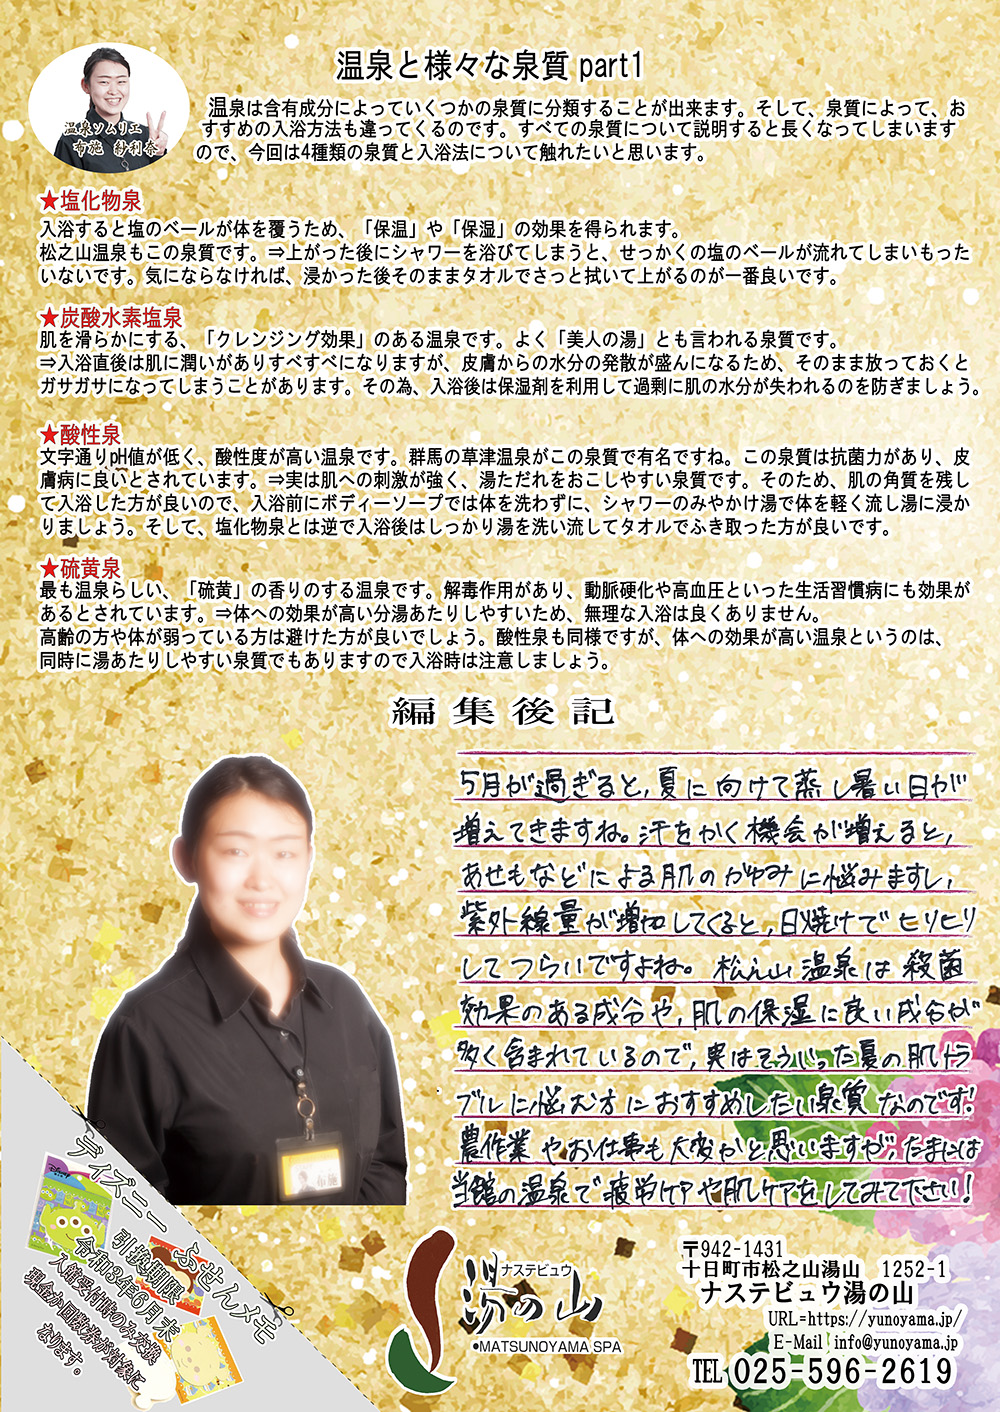 温泉と様々な泉質 part1
温泉ソムリエ
布施 紗利奈
温泉は含有成分によっていくつかの泉質に分類することが出来ます。そして、泉質によって、お
すすめの入浴方法も違ってくるのです。すべての泉質について説明すると長くなってしまいます
ので、今回は4種類の泉質と入浴法について触れたいと思います。
★塩化物泉
入浴すると塩のベールが体を覆うため、「保温」や「保湿」の効果を得られます。
松之山温泉もこの泉質です。⇒上がった後にシャワーを浴びてしまうと、せっかくの塩のベールが流れてしまいもった
いないです。気にならなければ、浸かった後そのままタオルでさっと拭いて上がるのが一番良いです。
★炭酸水素塩泉
肌を滑らかにする、「クレンジング効果」のある温泉です。よく「美人の湯」とも言われる泉質です。
⇒入浴直後は肌に潤いがありすべすべになりますが、皮膚からの水分の発散が盛んになるため、そのまま放っておくと
ガサガサになってしまうことがあります。その為、入浴後は保湿剤を利用して過剰に肌の水分が失われるのを防ぎましょう。
★酸性泉
文字通りpH値が低く、酸性度が高い温泉です。群馬の草津温泉がこの泉質で有名ですね。この泉質は抗菌力があり、皮
膚病に良いとされています。⇒実は肌への刺激が強く、湯ただれをおこしやすい泉質です。そのため、肌の角質を残し
て入浴した方が良いので、入浴前にボディーソープでは体を洗わずに、シャワーのみやかけ湯で体を軽く流し湯に浸か
りましょう。そして、塩化物泉とは逆で入浴後はしっかり湯を洗い流してタオルでふき取った方が良いです。
★硫黄泉
最も温泉らしい、「硫黄」の香りのする温泉です。解毒作用があり、動脈硬化や高血圧といった生活習慣病にも効果が
あるとされています。⇒体への効果が高い分湯あたりしやすいため、無理な入浴は良くありません。
高齢の方や体が弱っている方は避けた方が良いでしょう。酸性泉も同様ですが、体への効果が高い温泉というのは、
同時に湯あたりしやすい泉質でもありますので入浴時は注意しましょう。
編集後記
5月が過ぎると、夏に向けて蒸し暑い日が
増えてきますね。汗をかく機会が増えると、
あせもなどによる肌のかゆみに悩みますし、
紫外線量が増加してくると、日焼けでヒリヒリ
してつらいですよね。松之山温泉は殺菌
効果のある成分や、肌の保湿に良い成分が
多く含まれているので、実はそういった夏の肌トラ
ブルに悩む方におすすめしたい泉質なのです!
農作業やお仕事も大変かと思いますが、たまには
当館の温泉で疲労ケアや肌ケアをしてみて下さい!
布施
ディズニー ふせんメモ
引換期限
令和3年6月末
入館受付時のみ交換
現金か回数券が対象に
なります。
ナステビュウ
湯の山
●MATSUNOYAMA SPA
〒942-1431
十日町市松之山湯山 1252-1
ナステビュウ湯の山
URL=https://yunoyama.jp/
E-Mail info@yunoyama.jp
TEL 025-596-2619